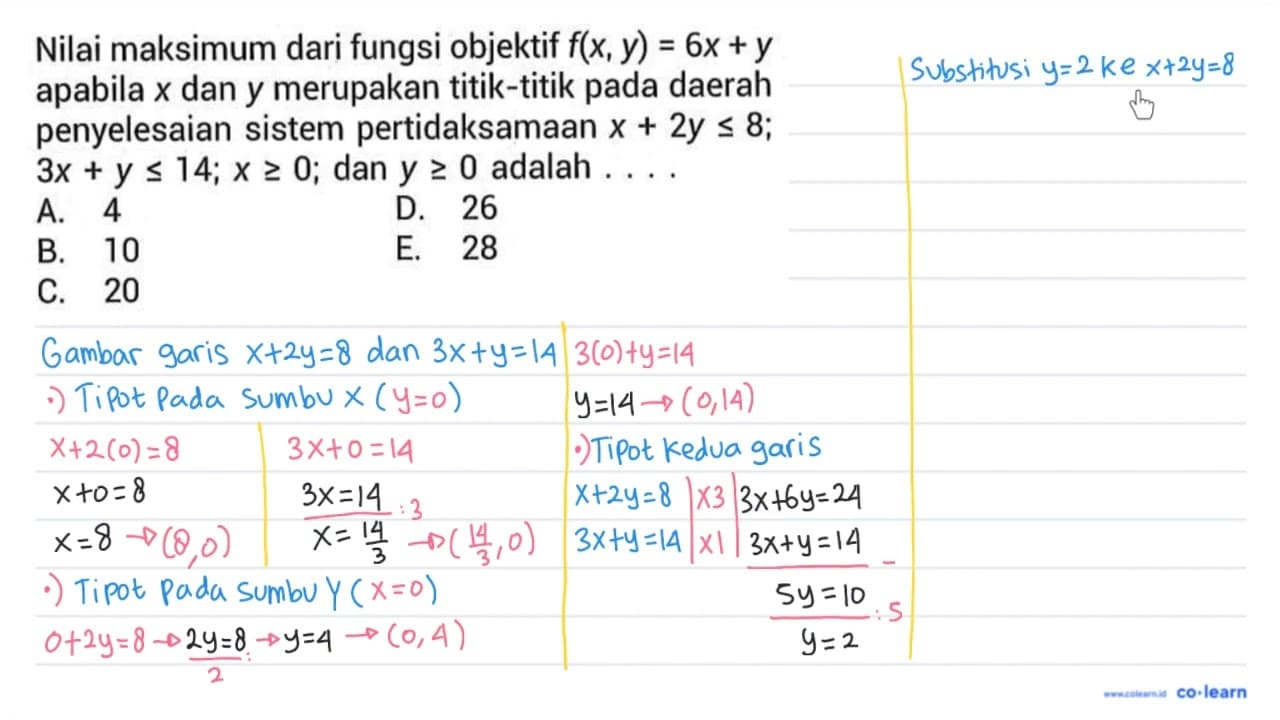 Nilai maksimum dari fungsi objektif f(x, y) = 6x + y
apabila x dan y merupakan titik-titik pada daerah
penyelesaian sistem pertidaksamaan x + 2y ≤ 8;
3x + y ≤ 14; x ≥ 0; dan y ≥ 0 adalah . . . .
A. 4
B. 10
C. 20
D. 26
E. 28
Gambar garis x+2y=8 dan 3x+y=14
•) Tipot Pada Sumbu X (y=0)
x+2(0)=8
x+0=8
x=8 → (8,0)
3x+0=14
3x=14 :3
x= 14/3 → (14/3,0)
•) Tipot Pada Sumbu Y (x=0)
0+2y=8 → 2y=8 :2 → y=4 → (0,4)
3(0)+y=14
y=14 → (0,14)
•) Tipot Kedua garis
x+2y=8 |x3| 3x+6y=24
3x+y=14 |x1| 3x+y=14 -
5y=10 :5
y=2
Substitusi y=2 ke x+2y=8
www.colearn.id co·learn